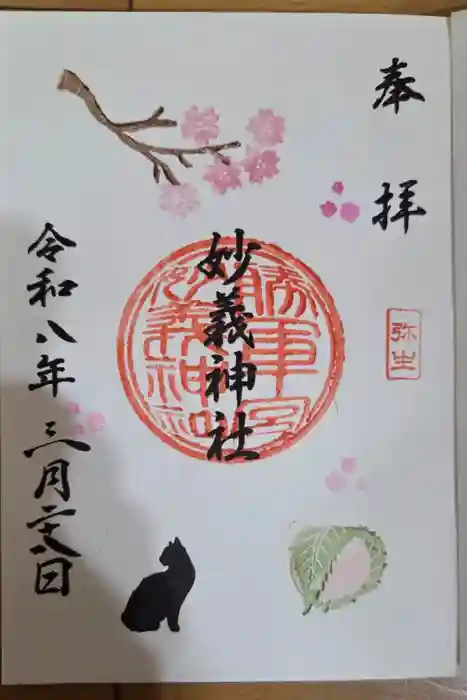 奉拝
弥生
勝軍宮
妙義神社
妙義神社
令和八年三月二十八日